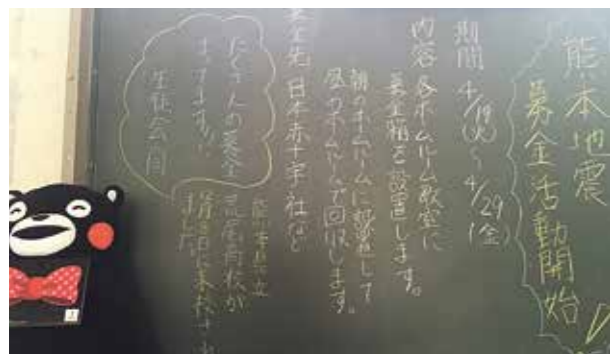 熊本地震
募金活動開始
期間 4/19(火)〜4/29(金)
内容 各ホームルーム教室に
募金箱を設置します。
朝のホームルームに設置して
昼のホームルームで回収します。
募金先 日本赤十字社など
たくさんの募金
生徒会一同
熊本県立